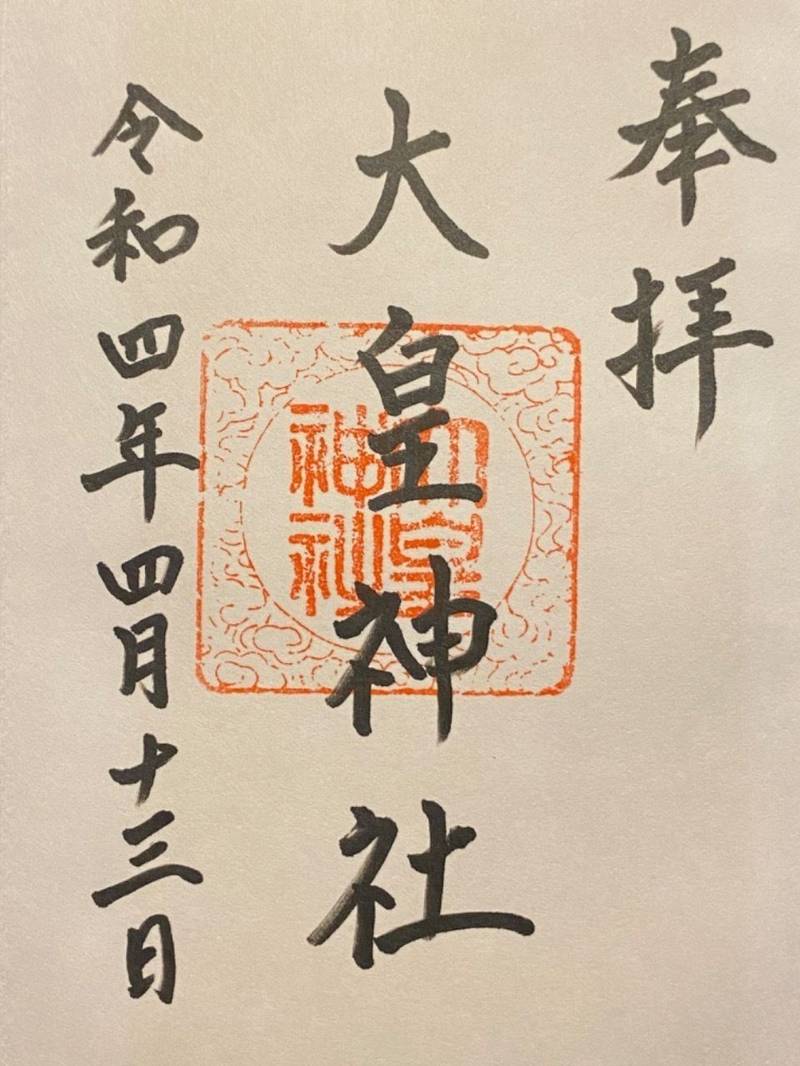 奉拝
大皇神社
大皇
神社
令和四年四月十三日